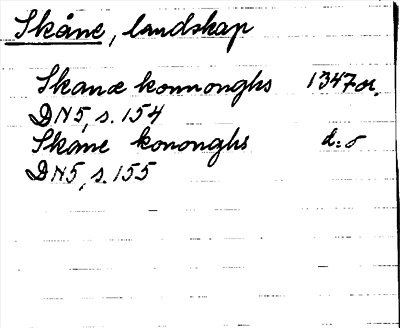 Skåne, landskap
Skanæ konnonghs 1347 or.
DN5, s. 154
Skane kononghs d:o
DN5, s. 155